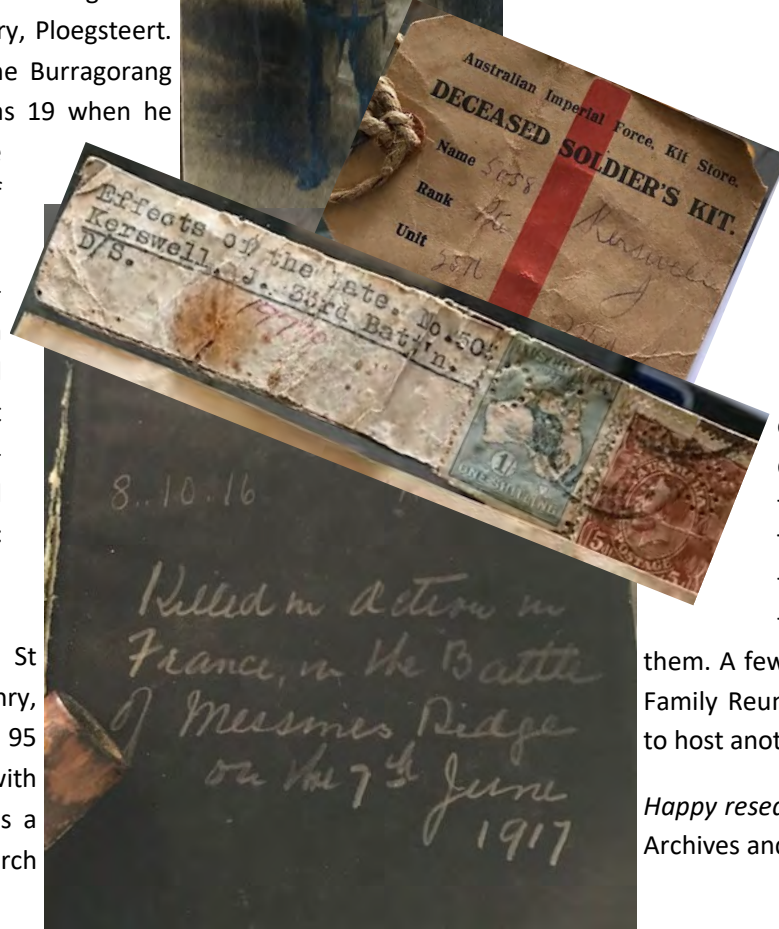 ry, Ploegsteert.
ne Burragorang
as 19 when he
Australian Imperial Force, Kit Store.
DECEASED SOLDIER'S KIT.
Name Kerswell
Rank
Unit
Effects of the late. No.505
Kerswell, J. 33rd Batt'n.
D/S.
1/
ONE SHILLING
POSTAGE
8..10.16
Killed in action in
France, in the Battle
of Messines Ridge
on the 7th June
1917
St
nry,
95
with
s a
rch
them. A few
Family Reun
to host anot
Happy resea
Archives and